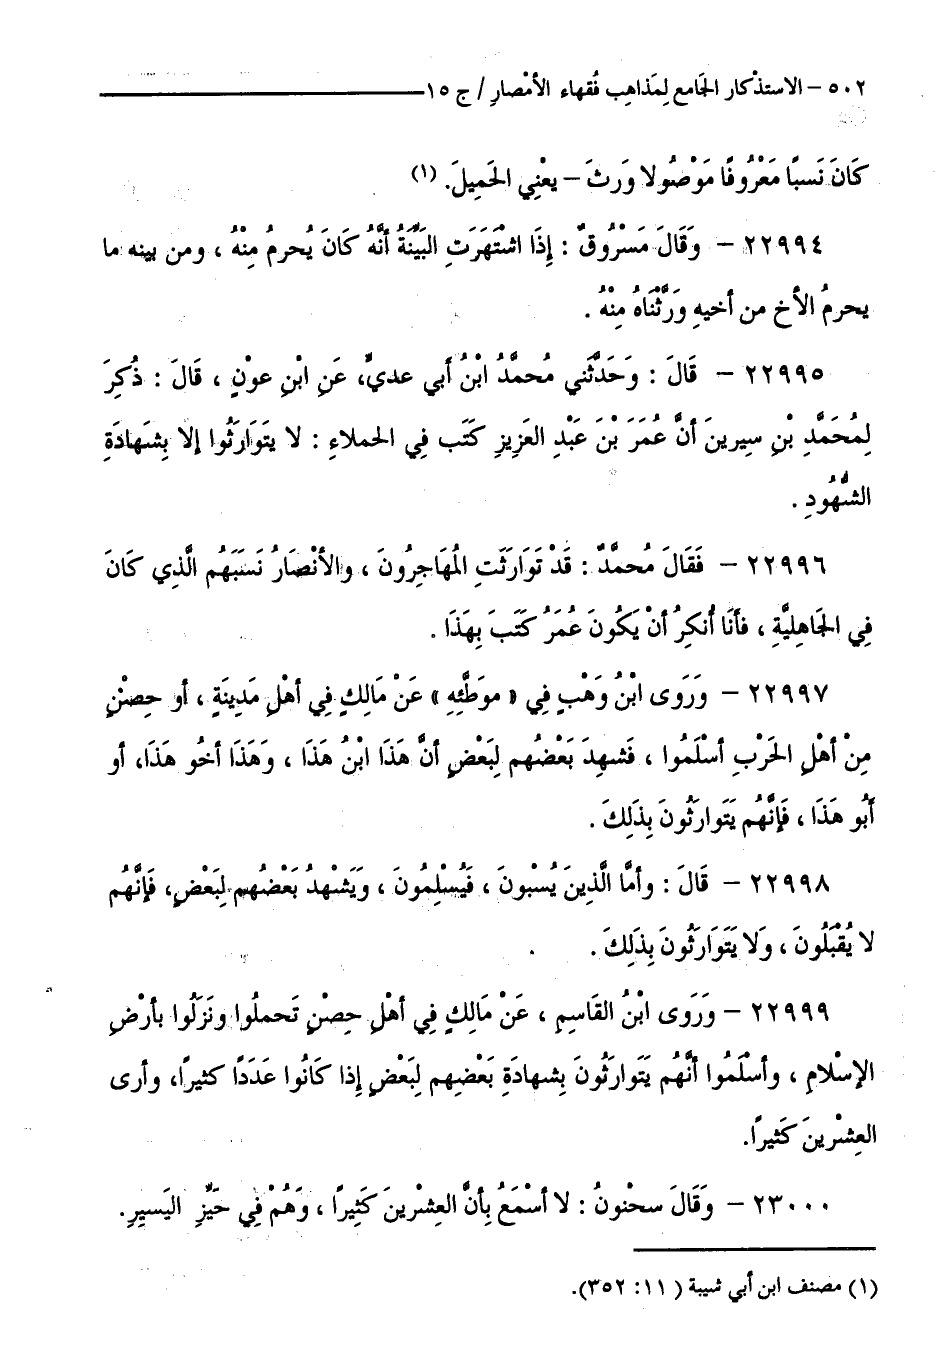 ٥٠٢ – الاستذْكار الجَامع لِمَذاهِب فُقهاء الأمْصارِ / ج ١٥
كَانَ نَسبًا مَعْرُوفًا مَوْصُولا وَرثَ – يعْنِي الحَمِيلَ. (١)
٢٢٩٩٤ – وَقَالَ مَسْرُوقٌ : إِذَا اشْتَهَرَتِ البَيِّنَةُ أنَّهُ كَانَ يُحرمُ مِنْهُ ، ومن بينه ما
يحرمُ الأخ من أخيهِ وَرَّثْنَاهُ مِنْهُ .
٢٢٩٩٥ – قَالَ : وَحَدَّثَني مُحمَّدُ ابْنُ أَبي عديٍّ، عَنِ ابْنِ عونٍ ، قَالَ : ذُكِرَ
لِمُحَمَّدِ بْنِ سيرينَ أنَّ عُمَرَ بْنَ عَبْدِ العَزِيزِ كَتَب فِي الحملاءِ : لا يتَوَارَثُوا إلا بِشَهادَةِ
الشُّهُودِ .
٢٢٩٩٦ – فَقَالَ مُحمَّدٌ : قَدْ تَوَارَثَتِ المُهَاجِرُونَ ، والأنْصَارُ نَسَبَهُم الَّذِي كَانَ
فِي الجَاهِليَّةِ ، فأنَا أُنكِرُ أنْ يَكُونَ عُمَرُ كَتَبَ بِهَذَا .
٢٢٩٩٧ – وَرَوَى ابْنُ وَهْبٍ فِي « موَطَّئِهِ » عَنْ مَالِكٍ فِي أهْلِ مَدِينَةٍ ، أو حِصْنٍ
مِنْ أهْلِ الحَرْبِ أسْلَمُوا ، فَشهِدَ بَعْضُهم لِبَعْضٍ أنَّ هَذَا ابْنُ هَذَا ، وَهَذَا أخُو هَذَا، أو
أبُو هَذَا ، فَإنَّهُم يَتَوارَثُونَ بِذَلِكَ .
٢٢٩٩٨ – قَالَ : وأمَّا الَّذِينَ يُسْبونَ ، فَيُسْلِمُونَ ، وَيَشْهدُ بَعْضُهم لِبَعْضٍ، فَإنَّهُم
لا يُقْبَلُونَ ، وَلا يَتَوَارَثُونَ بِذَلِكَ .
٢٢٩٩٩ – وَرَوَى ابْنُ القَاسِمِ ، عَنْ مَالِكٍ فِي أهْلِ حِصْنٍ تَحملُوا ونَزَلُوا بأرْضِ
الإسْلامِ ، وأسْلَمُوا أنَّهُم يَتَوارَثُونَ بِشَهادَةِ بَعْضِهم لِبَعْضٍ إذا كَانُوا عَدَدًا كثيرًا، وأرى
العِشْرينَ كَثيرًا.
٢٣٠٠٠ – وَقَالَ سحْنونُ : لا أسْمَعُ بِأنَّ العِشْرينَ كَثِيرًا ، وَهُمْ فِي حَيِّزِ اليَسيرِ.
(١) مصنف ابن أبي شيبة (١١ : ٣٥٢).